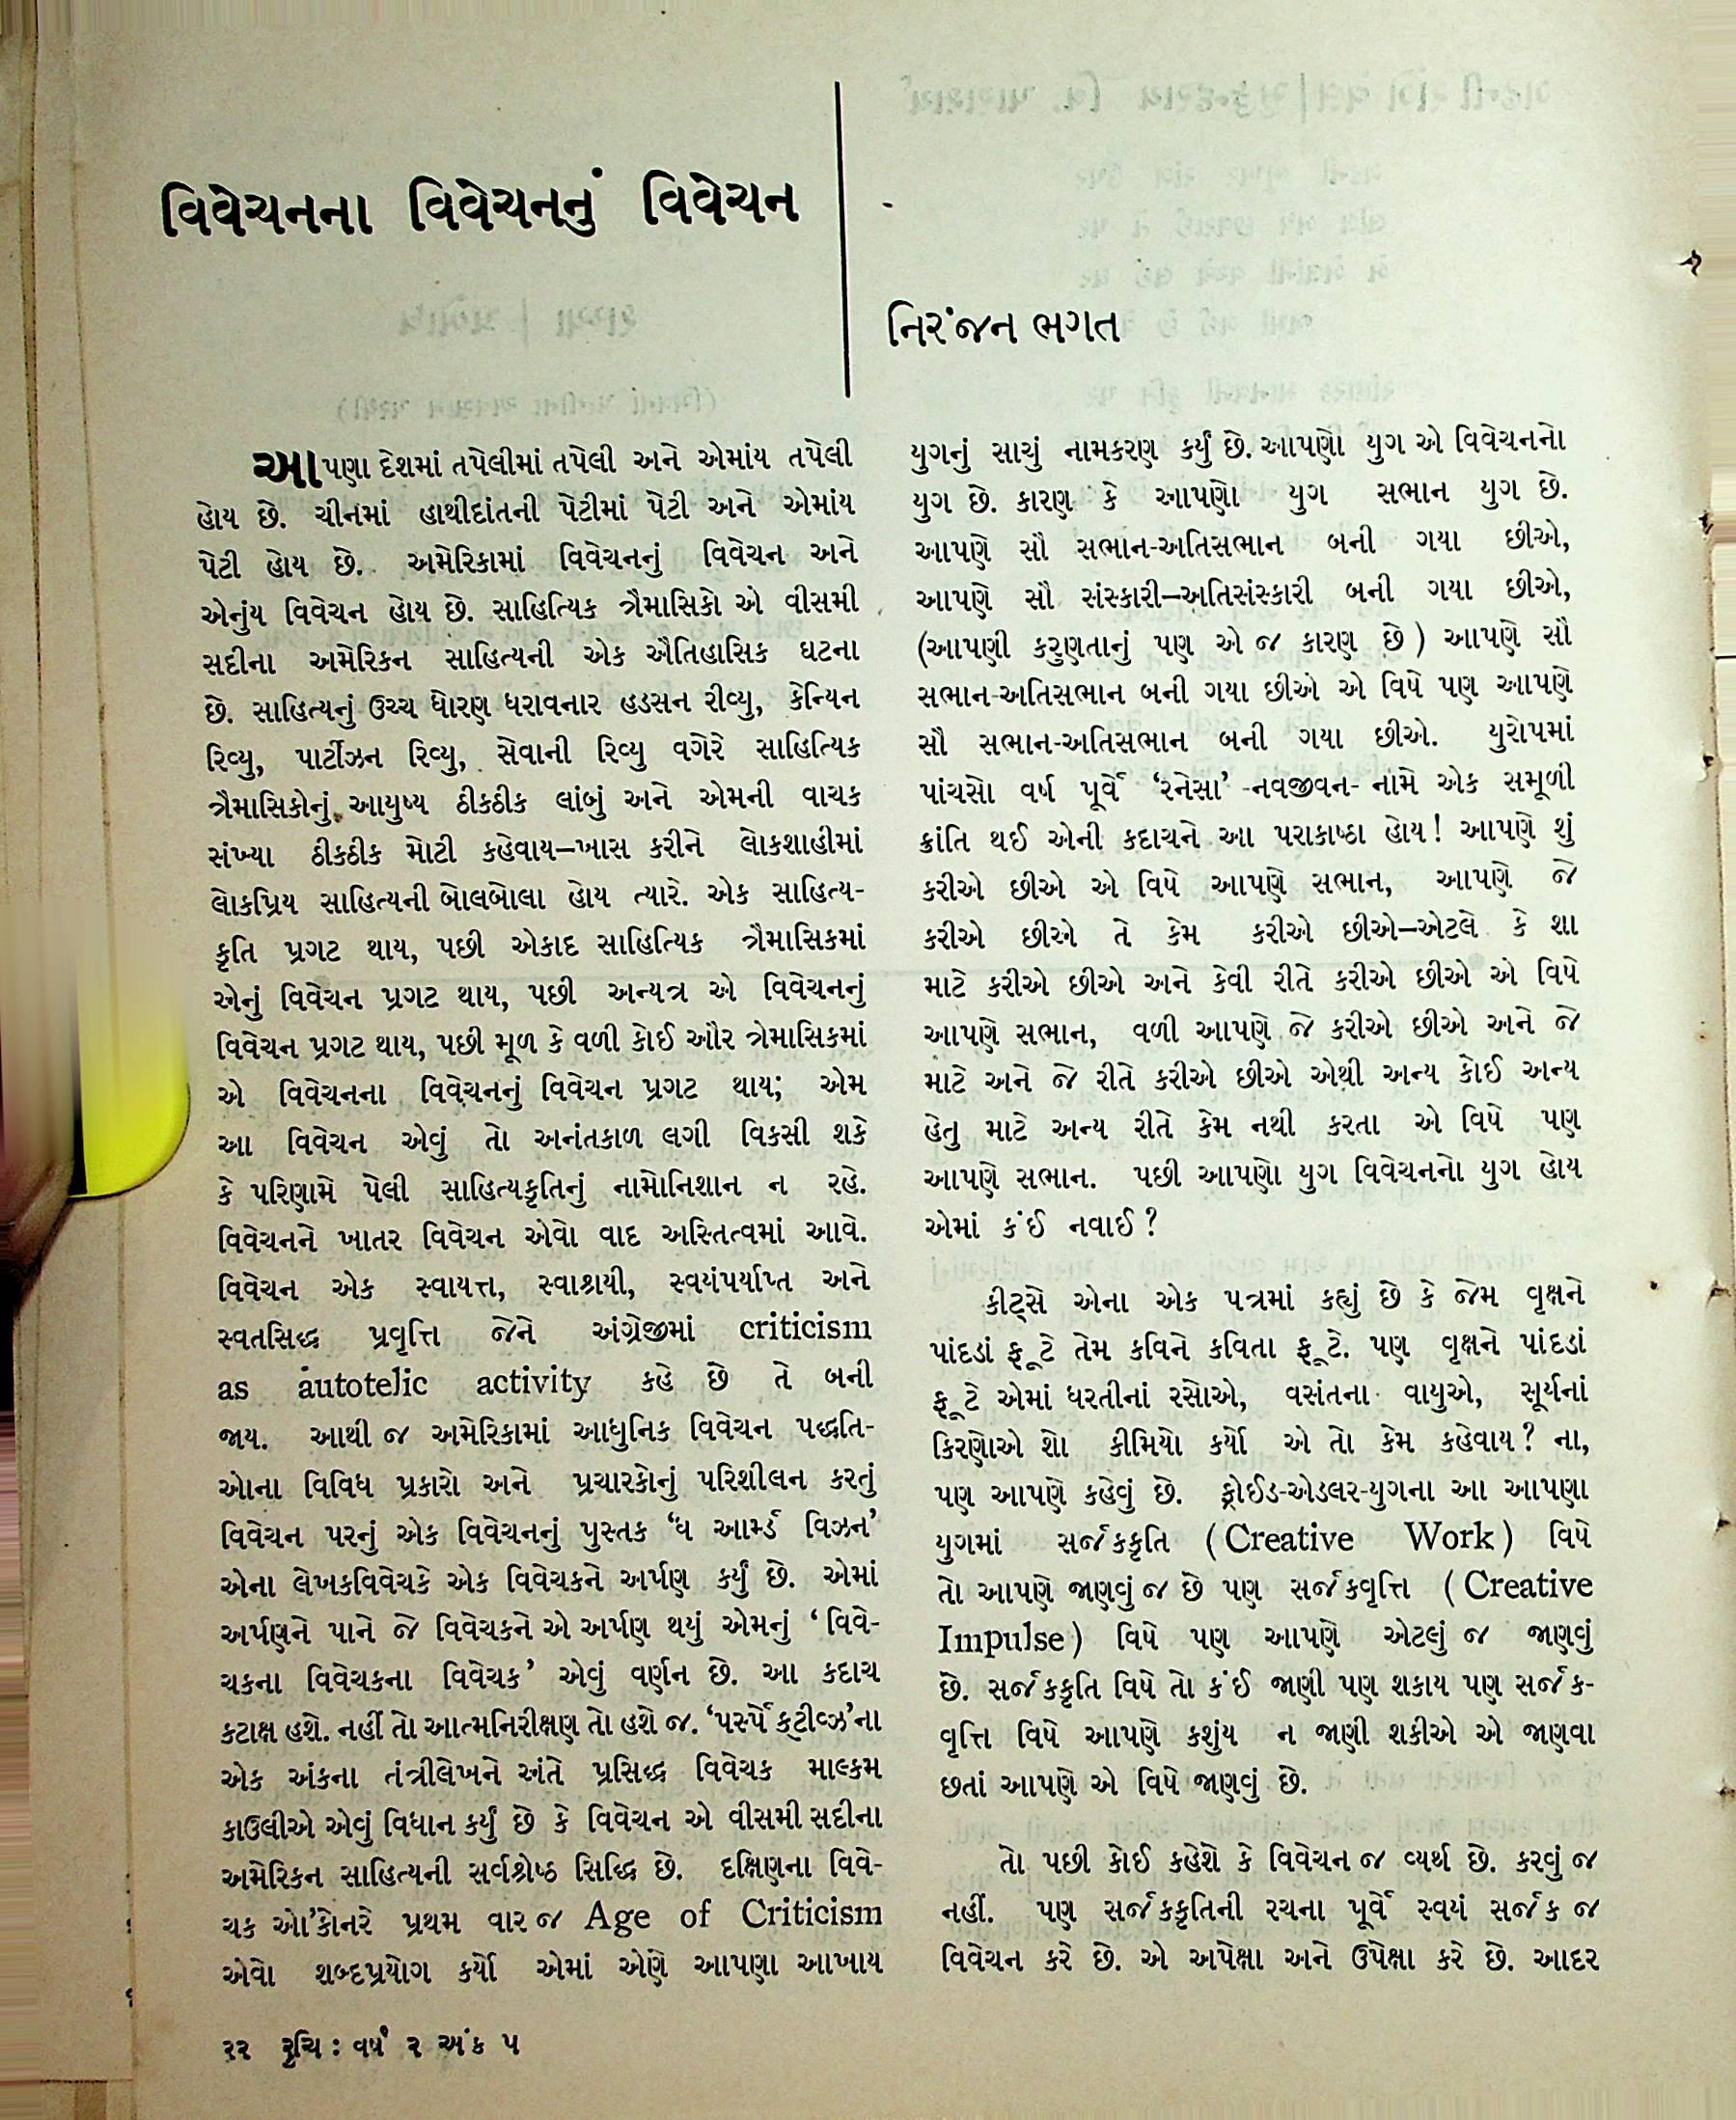 વિવેચનના વિવેચનનું વિવેચન
નિરંજન ભગત
આપણા દેશમાં તપેલીમાં તપેલી અને એમાંય તપેલી
હોય છે. ચીનમાં હાથીદાંતની પેટીમાં પેટી અને એમાંય
પેટી હોય છે. અમેરિકામાં વિવેચનનું વિવેચન અને
એનુંય વિવેચન હોય છે. સાહિત્યિક ત્રૈમાસિકો એ વીસમી
સદીના અમેરિકન સાહિત્યની એક ઐતિહાસિક ઘટના
છે. સાહિત્યનું ઉચ્ચ ધોરણ ધરાવનાર હડસન રીવ્યુ, કેન્યિન
રિવ્યુ, પાર્ટીઝન રિવ્યુ, સેવાની રિવ્યુ વગેરે સાહિત્યિક
ત્રૈમાસિકોનું આયુષ્ય ઠીકઠીક લાંબું અને એમની વાચક
સંખ્યા ઠીકઠીક મોટી કહેવાય—ખાસ કરીને લોકશાહીમાં
લોકપ્રિય સાહિત્યની બોલબોલા હોય ત્યારે. એક સાહિત્ય-
કૃતિ પ્રગટ થાય, પછી એકાદ સાહિત્યિક ત્રૈમાસિકમાં
એનું વિવેચન પ્રગટ થાય, પછી અન્યત્ર એ વિવેચનનું
વિવેચન પ્રગટ થાય, પછી મૂળ કે વળી કોઈ ઔર ત્રેમાસિકમાં
એ વિવેચનના વિવેચનનું વિવેચન પ્રગટ થાય; એમ
આ વિવેચન એવું તો અનંતકાળ લગી વિકસી શકે
કે પરિણામે પેલી સાહિત્યકૃતિનું નામોનિશાન ન રહે.
વિવેચનને ખાતર વિવેચન એવો વાદ અસ્તિત્વમાં આવે.
વિવેચન એક સ્વાયત્ત, સ્વાશ્રાયી, સ્વયંપર્યાપ્ત અને
સ્વતસિદ્ધ પ્રવૃત્તિ જેને અંગ્રેજીમાં criticism
as autotelic activity કહે છે તે બની
જાય. આથી જ અમેરિકામાં આધુનિક વિવેચન પદ્ધતિ-
ઓના વિવિધ પ્રકારો અને પ્રચારકોનું પરિશીલન કરતું
વિવેચન પરનું એક વિવેચનનું પુસ્તક ‘ધ આર્મ્ડ વિઝન’
એના લેખકવિવેચકે એક વિવેચકને અર્પણ કર્યું છે. એમાં
અર્પણને પાને જે વિવેચકને એ અર્પણ થયું એમનું ‘વિવે-
ચકના વિવેચકના વિવેચક’ એવું વર્ણન છે. આ કદાચ
કટાક્ષ હશે. નહીં તો આત્મનિરીક્ષણ તો હશે જ. ‘પર્સ્પેક્ટીવ્ઝ’ના
એક અંકના તંત્રીલેખને અંતે પ્રસિદ્ધ વિવેચક માલ્કમ
કાઉલીએ એવું વિધાન કર્યું છે કે વિવેચન એ વીસમી સદીના
અમેરિકન સાહિત્યની સર્વશ્રેષ્ઠ સિદ્ધિ છે. દક્ષિણના વિવે-
ચક ઓ’કોનરે પ્રથમ વાર જ Age of Criticism
એવો શબ્દપ્રયોગ કર્યો એમાં એણે આપણા આખાય
યુગનું સાચું નામકરણ કર્યું છે. આપણો યુગ એ વિવેચનનો
યુગ છે. કારણ કે આપણો યુગ સભાન યુગ છે.
આપણે સૌ સભાન-અતિસભાન બની ગયા છીએ,
આપણે સૌ સંસ્કારી—અતિસંસ્કારી બની ગયા છીએ,
(આપણી કરુણતાનું પણ એ જ કારણ છે ) આપણે સૌ
સભાન-અતિસભાન બની ગયા છીએ એ વિષે પણ આપણે
સૌ સભાન-અતિસભાન બની ગયા છીએ. યુરોપમાં
પાંચસો વર્ષ પૂર્વે ‘રનેસા’ -નવજીવન- નામે એક સમૂળી
ક્રાંતિ થઈ એની કદાચને આ પરાકાષ્ઠા હોય! આપણે શું
કરીએ છીએ એ વિષે આપણે સભાન, આપણે જે
કરીએ છીએ તે કેમ કરીએ છીએ—એટલે કે શા
માટે કરીએ છીએ અને કેવી રીતે કરીએ છીએ એ વિષે
આપણે સભાન, વળી આપણે જે કરીએ છીએ અને જે
માટે અને જે રીતે કરીએ છીએ એથી અન્ય કોઈ અન્ય
હેતુ માટે અન્ય રીતે કેમ નથી કરતા એ વિષે પણ
આપણે સભાન. પછી આપણો યુગ વિવેચનનો યુગ હોય
એમાં કંઈ નવાઈ?
કીટ્સે એના એક પત્રમાં કહ્યું છે કે જેમ વૃક્ષને
પાંદડાં ફૂટે તેમ કવિને કવિતા ફૂટે. પણ વૃક્ષને પાંદડાં
ફૂટે એમાં ધરતીનાં રસોએ, વસંતના વાયુએ, સૂર્યનાં
કિરણોએ શો કીમિયો કર્યો એ તો કેમ કહેવાય? ના,
પણ આપણે કહેવું છે. ફ્રોઈડ-એડલર-યુગના આ આપણા
યુગમાં સર્જકકૃતિ (Creative Work) વિષે
તો આપણે જાણવું જ છે પણ સર્જકવૃત્તિ (Creative
Impulse) વિષે પણ આપણે એટલું જ જાણવું
છે. સર્જકકૃતિ વિષે તો કંઈ જાણી પણ શકાય પણ સર્જક-
વૃત્તિ વિષે આપણે કશુંય ન જાણી શકીએ એ જાણવા
છતાં આપણે એ વિષે જાણવું છે.
તો પછી કોઈ કહેશે કે વિવેચન જ વ્યર્થ છે. કરવું જ
નહીં. પણ સર્જકકૃતિની રચના પૂર્વે સ્વયં સર્જક જ
વિવેચન કરે છે. એ અપેક્ષા અને ઉપેક્ષા કરે છે. આદર
૨૨ રૂચિ : વર્ષ ૨ અંક ૫